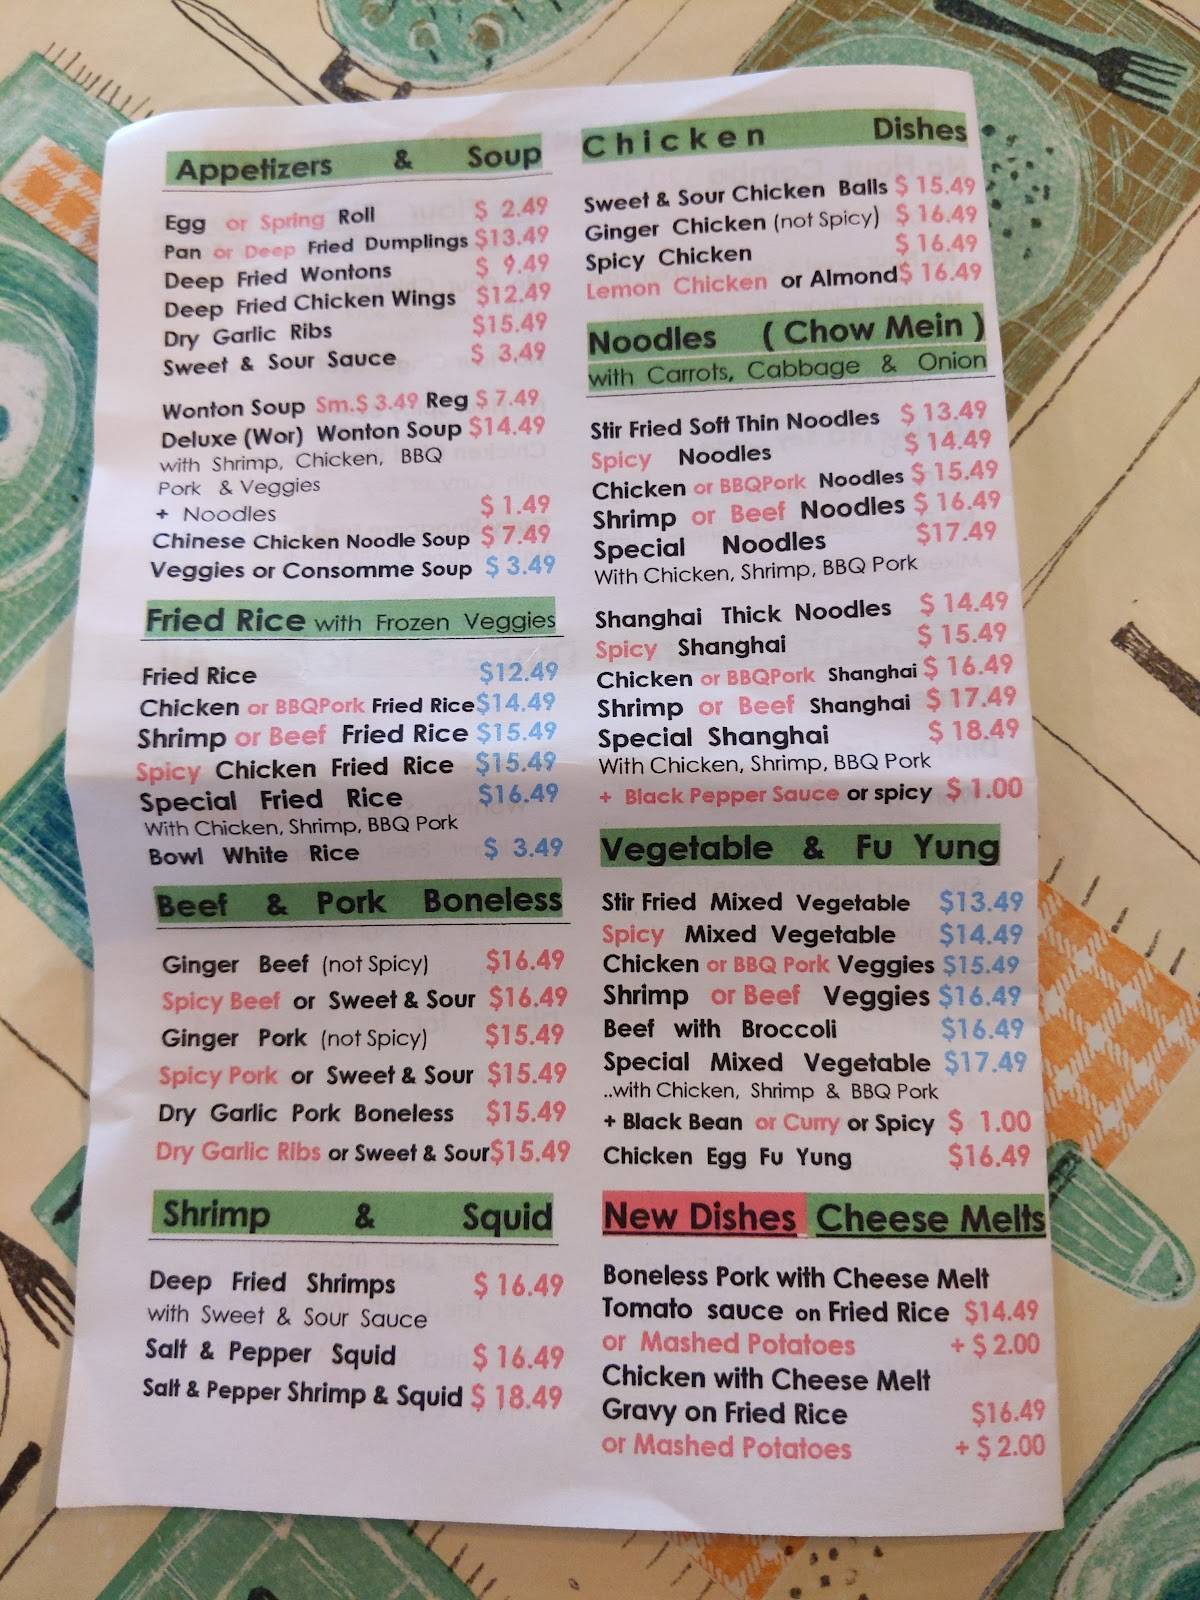 Appetizers & Soup
Egg or Spring Roll $ 2.49
Pan or Deep Fried Dumplings $13.49
Deep Fried Wontons $ 9.49
Deep Fried Chicken Wings $12.49
Dry Garlic Ribs $15.49
Sweet & Sour Sauce $ 3.49
Wonton Soup Sm.$ 3.49 Reg $ 7.49
Deluxe (Wor) Wonton Soup $14.49
with Shrimp, Chicken, BBQ
Pork & Veggies
+ Noodles $ 1.49
Chinese Chicken Noodle Soup $ 7.49
Veggies or Consomme Soup $ 3.49
Fried Rice with Frozen Veggies
Fried Rice $12.49
Chicken or BBQPork Fried Rice $14.49
Shrimp or Beef Fried Rice $15.49
Spicy Chicken Fried Rice $15.49
Special Fried Rice $16.49
With Chicken, Shrimp, BBQ Pork
Bowl White Rice $ 3.49
Beef & Pork Boneless
Ginger Beef (not Spicy) $16.49
Spicy Beef or Sweet & Sour $16.49
Ginger Pork (not Spicy) $15.49
Spicy Pork or Sweet & Sour $15.49
Dry Garlic Pork Boneless $15.49
Dry Garlic Ribs or Sweet & Sour $15.49
Shrimp & Squid
Deep Fried Shrimps $ 16.49
with Sweet & Sour Sauce
Salt & Pepper Squid $ 16.49
Salt & Pepper Shrimp & Squid $ 18.49
Chicken Dishes
Sweet & Sour Chicken Balls $ 15.49
Ginger Chicken (not Spicy) $ 16.49
Spicy Chicken $ 16.49
Lemon Chicken or Almond $ 16.49
Noodles ( Chow Mein )
with Carrots, Cabbage & Onion
Stir Fried Soft Thin Noodles $ 13.49
Spicy Noodles $ 14.49
Chicken or BBQPork Noodles $ 15.49
Shrimp or Beef Noodles $ 16.49
Special Noodles $17.49
With Chicken, Shrimp, BBQ Pork
Shanghai Thick Noodles $ 14.49
Spicy Shanghai $ 15.49
Chicken or BBQPork Shanghai $ 16.49
Shrimp or Beef Shanghai $ 17.49
Special Shanghai $ 18.49
With Chicken, Shrimp, BBQ Pork
+ Black Pepper Sauce or spicy $ 1.00
Vegetable & Fu Yung
Stir Fried Mixed Vegetable $13.49
Spicy Mixed Vegetable $14.49
Chicken or BBQ Pork Veggies $15.49
Shrimp or Beef Veggies $16.49
Beef with Broccoli $16.49
Special Mixed Vegetable $17.49
..with Chicken, Shrimp & BBQ Pork
+ Black Bean or Curry or Spicy $ 1.00
Chicken Egg Fu Yung $16.49
New Dishes Cheese Melts
Boneless Pork with Cheese Melt
Tomato sauce on Fried Rice $14.49
or Mashed Potatoes + $ 2.00
Chicken with Cheese Melt
Gravy on Fried Rice $16.49
or Mashed Potatoes + $ 2.00